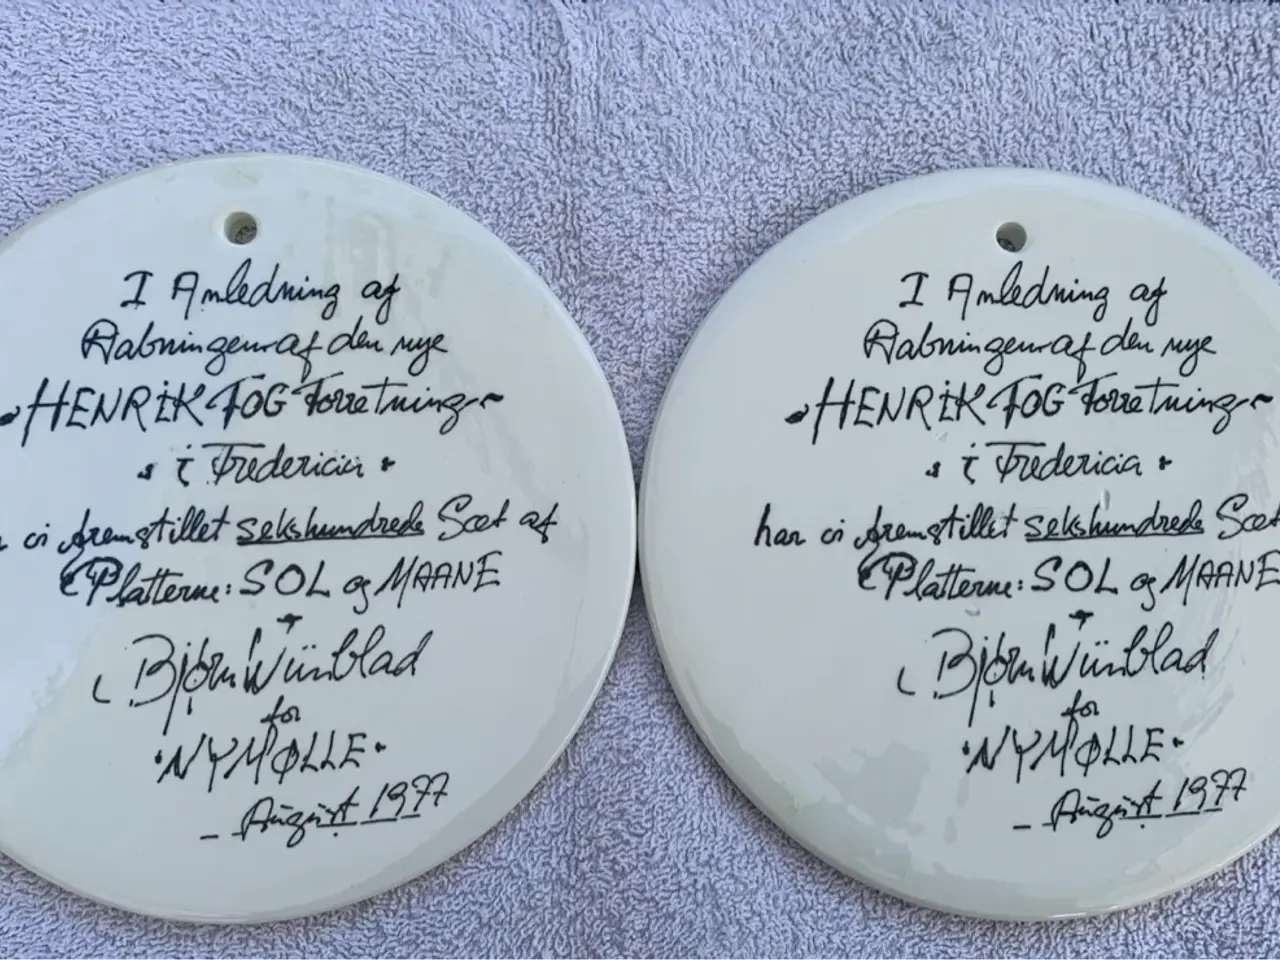 I Anledning af
Aabningen af den nye
HENRIK FOG Forretning
i Fredericia
ci fremstillet sekshundrede Sæt af
Platterne: SOL og MAANE
Bjørn Wiinblad
for
NYMØLLE
August 1977
I Anledning af
Aabningen af den nye
HENRIK FOG Forretning
i Fredericia
har vi fremstillet sekshundrede Sæt
Platterne: SOL og MAANE
Bjørn Wiinblad
for
NYMØLLE
August 1977